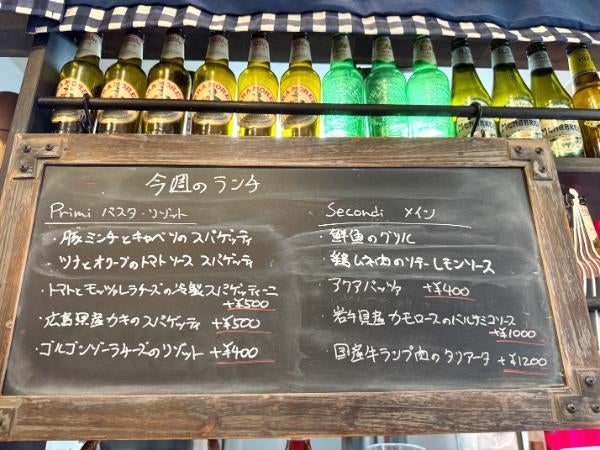 今週のランチ
Primi パスタ・リゾット
・豚ミンチとキャベツのスパゲッティ
・ツナとオリーブのトマトソース スパゲッティ
・トマトとモッツァレラチーズの冷製スパゲッティーニ
+¥500
・広島県産カキのスパゲッティ +¥500
・ゴルゴンゾーラチーズのリゾット +¥400
Secondi メイン
・鮮魚のグリル
・鶏ムネ肉のソテー レモンソース
・アクアパッツァ +¥400
・岩手県産カモロースのバルサミコソース
+¥1000
・国産牛ランプ肉のタリアータ +¥1200